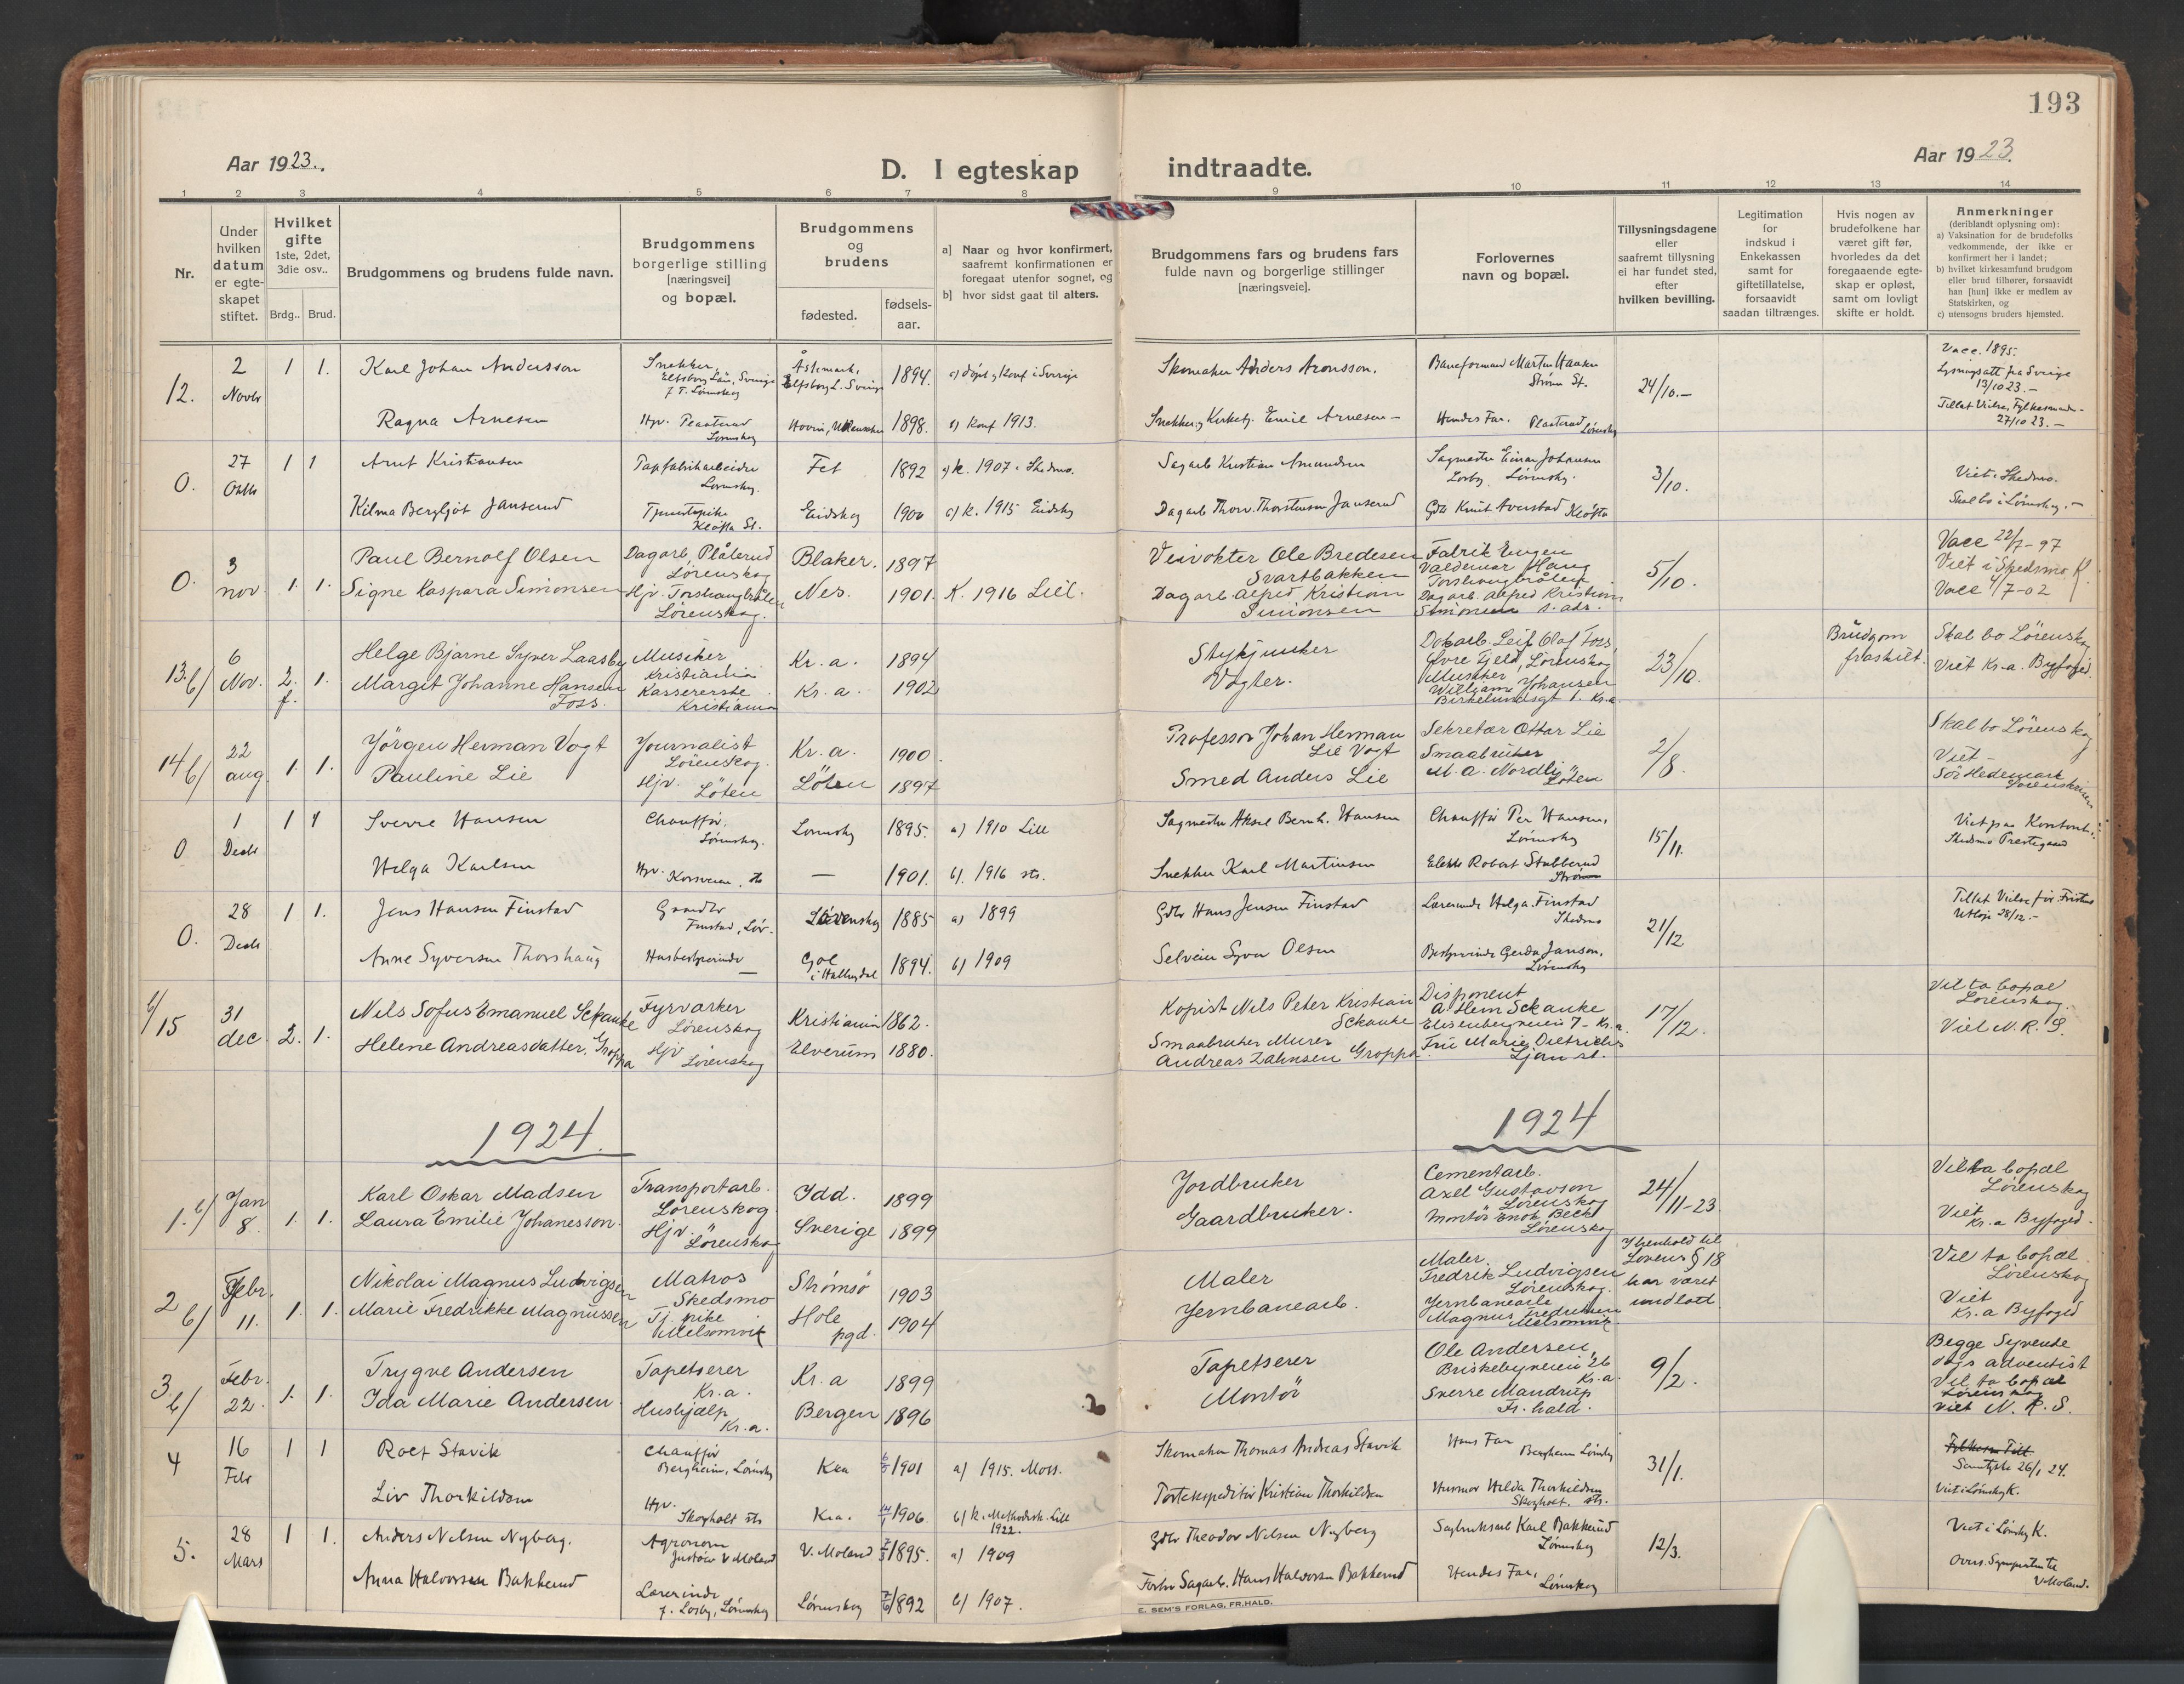 193
Aar 1923.
D. I egteskap indtraadte.
Aar 1923.
1 2 3 4 5 6 7 8 9 10 11 12 13 14
Nr.
Under hvilken datum er egteskapet stiftet.
Hvilket gifte 1ste, 2det, 3die osv..
Brdg.. Brud.
Brudgommens og brudens fulde navn.
Brudgommens borgerlige stilling [næringsvei] og bopæl.
Brudgommens og brudens
fødested.
fødsels-aar.
a) Naar og hvor konfirmert, saafremt konfirmationen er foregaat utenfor sognet, og
b) hvor sidst gaat til alters.
Brudgommens fars og brudens fars fulde navn og borgerlige stillinger [næringsveie].
Forlovernes navn og bopæl.
Tillysningsdagene eller saafremt tillysning ei har fundet sted, efter hvilken bevilling.
Legitimation for indskud i Enkekassen samt for giftetillatelse, forsaavidt saadan tiltrænges.
Hvis nogen av brudefolkene har været gift før, hvorledes da det foregaaende egteskap er opløst, samt om lovligt skifte er holdt.
Anmerkninger (deriblandt oplysning om):
a) Vaksination for de brudefolks vedkommende, der ikke er konfirmert her i landet;
b) hvilket kirkesamfund brudgom eller brud tilhører, forsaavidt han [hun] ikke er medlem av Statskirken, og
c) utensogns bruders hjemsted.
12. 2 Novbr 1 1. Karl Johan Andersson Snekker, Elfsborg Län, Sverige 1894. Skomaker Anders Aronsson. Baneformand Martin Haaken Strøm St. 24/10.- Vacc. 1895. Lysningsatt fra Sverige 13/10 23.-
Ragna Arnesen 1898. Konf 1913. Emil Arnesen Hendes Far. 27/10 23.-
0. 27 1 1 Arnt Kristiansen Tapfabrikarbeider Fet 1892 k. 1907 i Skedsmo. Sagarb Kristian Amundsen Sagmester Einar Johansen Losby, Lørenskog. 3/10. Viet i Skedsmo.
Kilma Bergljot Janserud Tjenestepike Kløfta St. Eidskog 1900 k. 1915 Eidskog Dagarb Thorv. Thorstensen Janserud Gdbr Knut Averstad Kløfta Skal bo i Lørenskog.-
0. 3 nov. 1. 1. Paul Bernolf Olsen Dagarb, Plåterud Lørenskog Blaker. 1897 Veivokter Ole Bredesen Svartbakken Valdemar Haug 5/10. Vacc 22/7-97 Viet i Skedsmo K.
Signe Kaspara Simonsen Hjv. Lørenskog. Nes. 1901. K. 1916 Lill. Dagarb Alfred Kristian Simonsen Dagarb. Alfred Kristian Simonsen s. adr. Vacc 4/7-02
13. b/ 6 Nov. 2. f. 1. Helge Bjarne Syver Laasby Musiker Kristiania Kr.a. 1894 Stykjunker Dokarb. Leif Olaf Foss, Øvre Fjeld, Lørenskog 23/10. Brudgom fraskilt. Skal bo Lörenskog
Margit Johanne Hansen Foss. Kassererske Kristiania Kr.a. 1902 Vogter. Musiker William Johansen Birkelundsgt 1. Kr.a. Viet Kr.a. Byfoged.
14 b/ 22 aug. 1. 1. Jörgen Herman Vogt Journalist Lörenskog. Kr.a. 1900 Professor Johan Herman Lie Vogt Sekretær Ottar Lie 2/8. Skal bo Lörenskog
Pauline Lie Hjv. Löten Löten 1897 Smed Anders Lie Smaabruker M. A. Nordli Löten Viet - Sör Hedemark
0 1 Decb 1 1 Sverre Hansen Chauffør, Lørenskog. Lørenskog 1895. a) 1910 Lill Sagmester Aksel Bernh. Hansen Chauffør Per Hansen, Lørenskog 15/11. Viet paa Kontoret i Skedsmo Prestegaard
Helga Karlsen — 1901. b). 1916 sts. Snekker Karl Martinsen Robert Stubberud Strøm
0. 28 Decb 1 1. Jens Hansen Finstad Gaardbr Finstad, Lør. Lörenskog 1885 a) 1899 Gdbr Hans Jensen Finstad Lærerinde Helga Finstad Skedsmo 21/12
Anne Syversen Thorshaug Husbestyrerinde — Gol i Hallingdal 1894. b) 1909 Selveier Syver Olsen Bestyrerinde Gerda Janson, Lørenskog
b/ 15 31 dec. 2. 1. Nils Sofus Emanuel Schanke Fyrvarker Lörenskog Kristiania 1862. Kopist Nils Peter Kristian Schanke Disponent A. Hem Schanke Elisenbergveien 7 - Kr.a. 17/12. Vil ta bopæl Lørenskog.
Helene Andreasdatter Groppa Hjv Lörenskog Elverum 1880. Smaabruker Murer Andreas Zahnsen Groppa Fru Marie Dietrichs Ljan st. Viet N. R. S.
1924. 1924
1. b/ Jan 8. 1. 1. Karl Oskar Madsen Transportarb. Lørenskog Idd. 1899 Jordbruker Cementarb. Axel Gustavson Lørenskog 24/11-23. Vil ta bopæl Lørenskog
Laura Emilie Johanesson. Hjv. Lörenskog Sverige 1899 Gaardbruker. Montör Enok Beck Lørenskog Viet Kr.a Byfoged.
2 b/ Febr. 11. 1. 1. Nikolai Magnus Ludvigsen Matros Skedsmo Strømsø 1903 Maler Maler Fredrik Ludvigsen Lørenskog. I henhold til Lovens § 18 har været undlatt. Vil ta bopæl Lørenskog
Marie Fredrikke Magnussen Tj. pike Melsomvik Hole pgd. 1904 Jernbanearb. Jernbanearb Magnus Fredriksen Melsomvik. Viet Kr.a Byfoged
3 b/ Febr. 22. 1. 1. Trygve Andersen Tapetserer Kr.a. Kr.a 1899 Tapetserer Ole Andersen, Briskebyveien 26 Kr.a. 9/2. Begge Syvende dags adventist
Ida Marie Andersen Hushjælp Kr.a. Bergen 1896 Montör Sverre Mandrup Fr.hald. Vil ta bopæl Lörenskog viet N. R. S.
4 16 Febr 1 1 Rolf Stavik Chauffør Bergheim, Lørenskog Kra 1901 a) 1915. Moss. Skomaker Thomas Andreas Stavik Hans Far Bergheim Lørenskog 31/1. Samtykke 26/1 24.
Liv Thorkildsen Hjv. Skogholt sts Kra. 1906. b) k. Methodistk. Lill 1922. Portekspeditör Kristian Thorkildsen Husmor Hilda Thorkildsen Skogholt. sts. Viet i Lørenskog K.
5. 28 Mars 1 1. Anders Nelsen Nyberg. Agronom V Moland V. Moland 1895. a) 1909 Gdbr Theodor Nelsen Nyberg Sagbruksarb Karl Bakkerud Lørenskog 12/3. Viet i Lørenskog K.
Anna Halvorsen Bakkerud Lærerinde f. Losby, Lørenskog Lørenskog 1892 b) 1907. Forhv Sagarb. Hans Halvorsen Bakkerud Hendes Far, Lørenskog V Moland.
E. SEM'S FORLAG, FR.HALD.